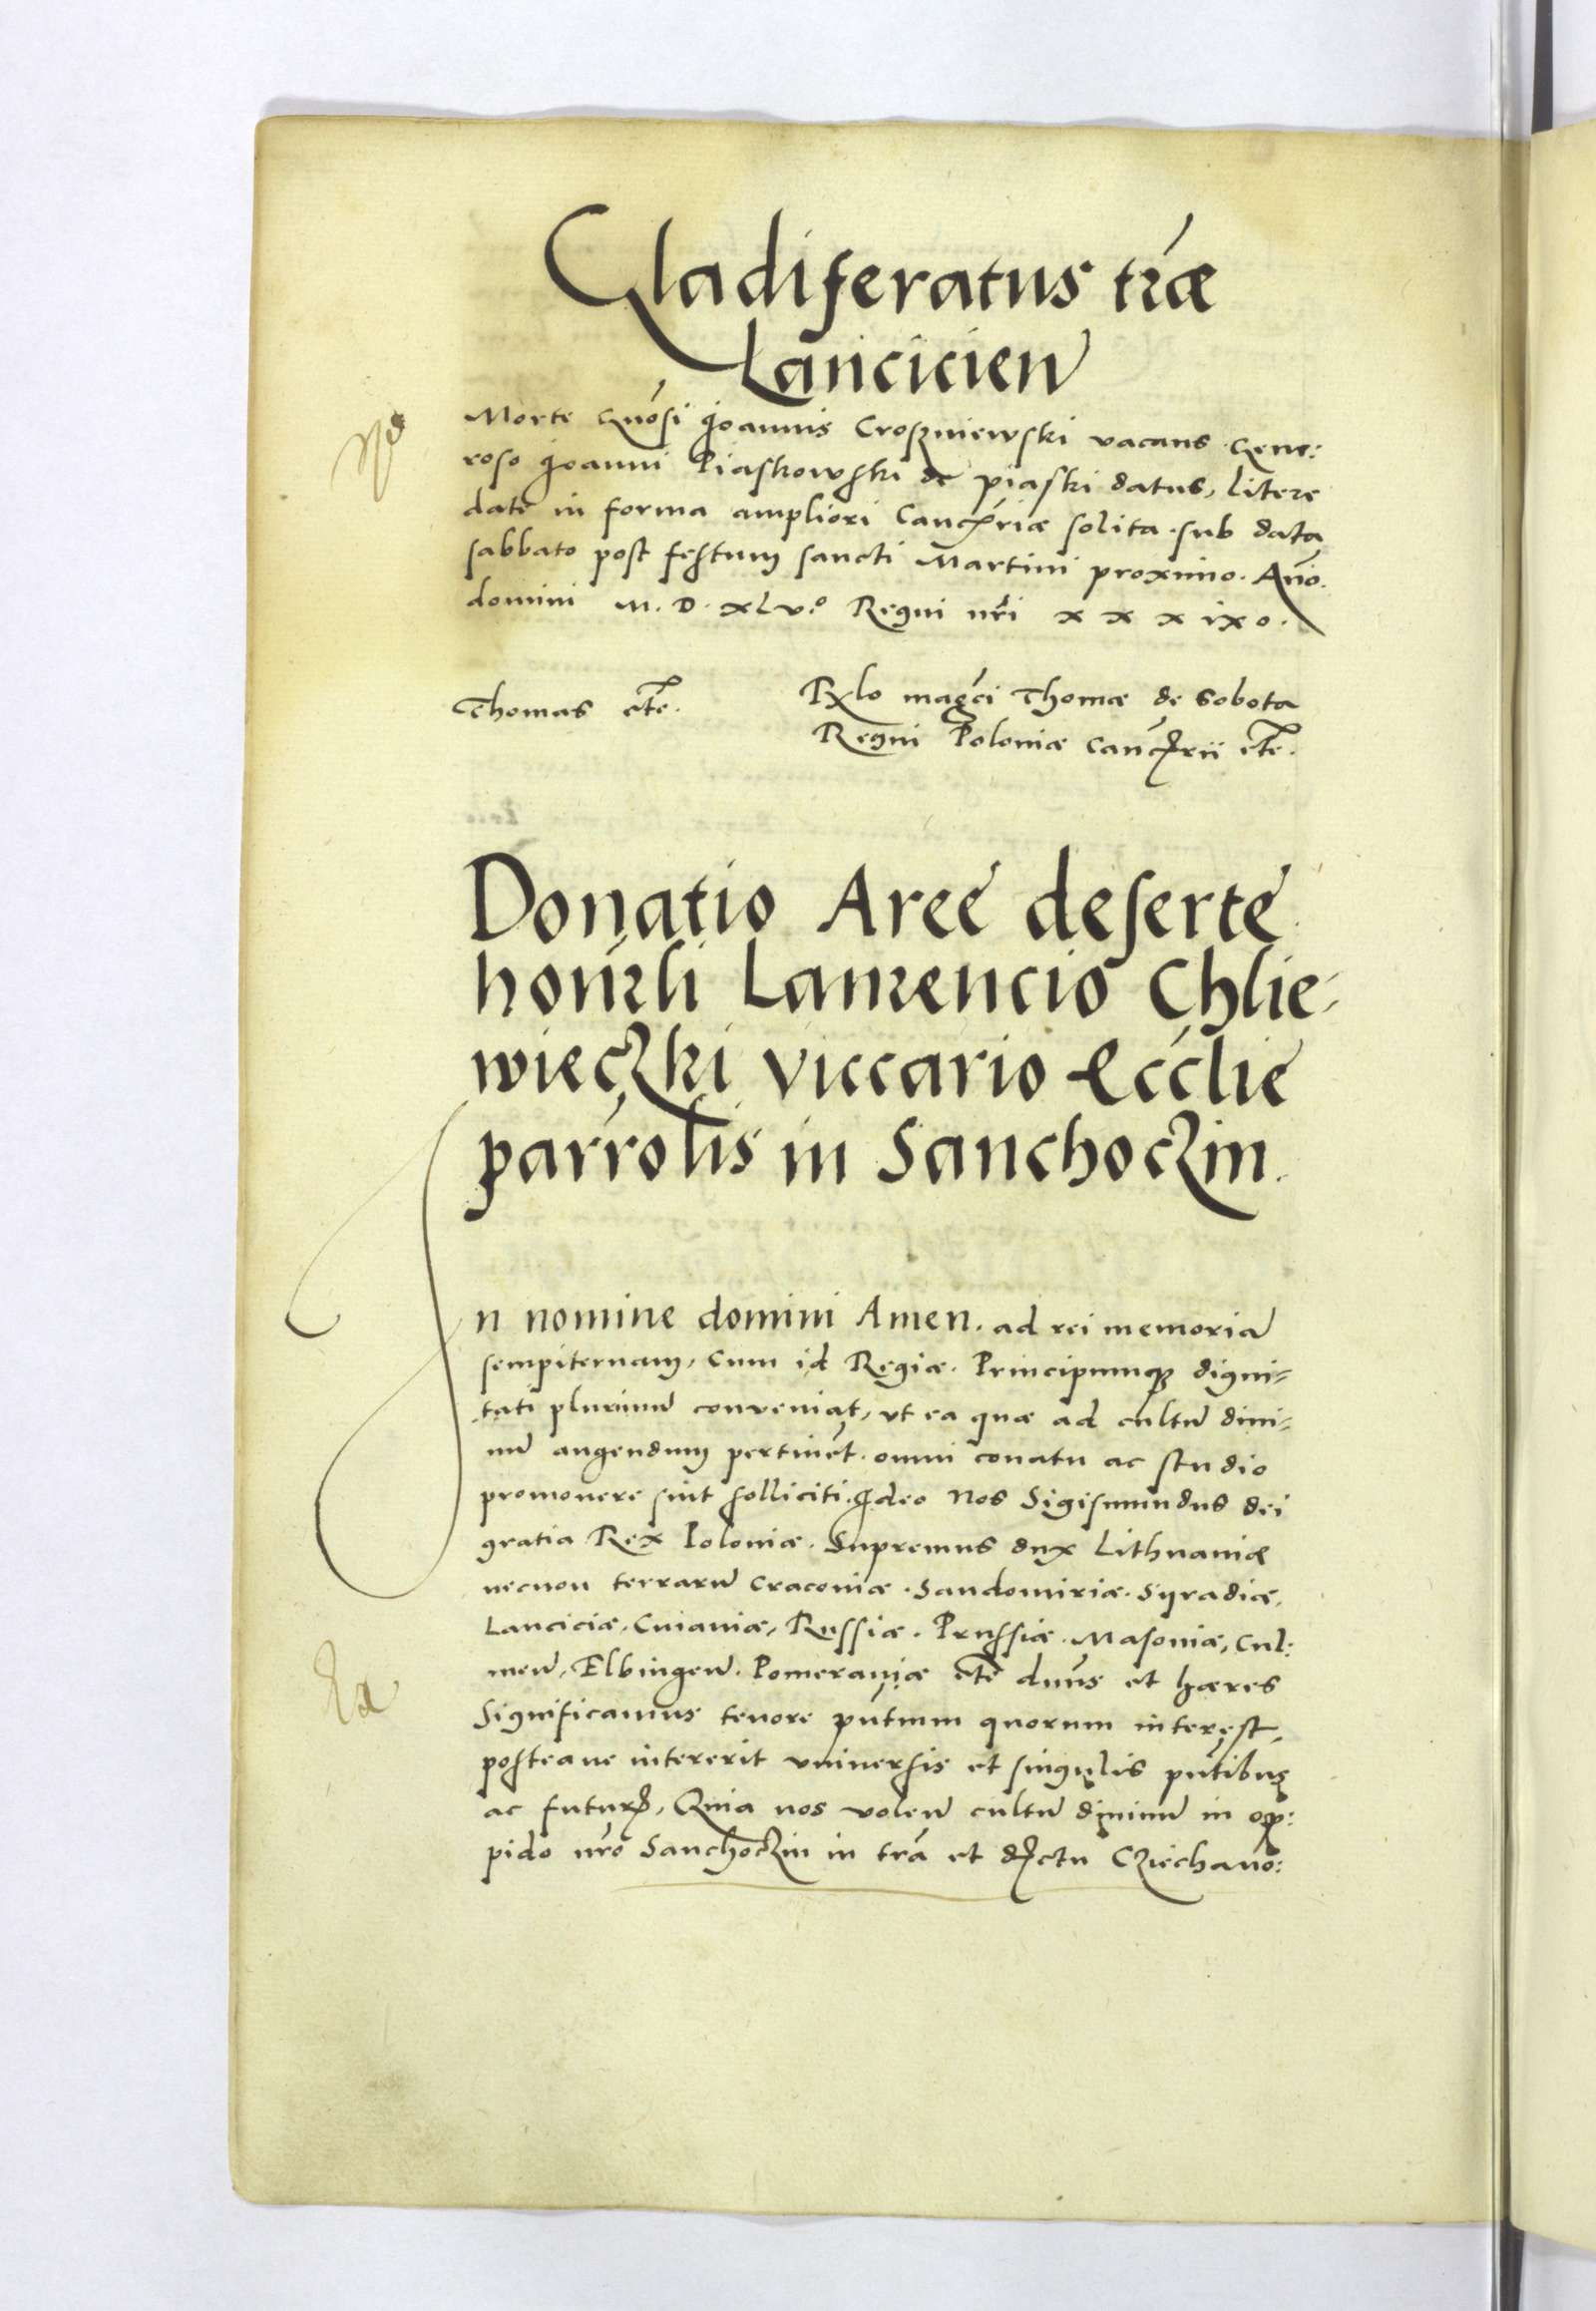 Gladiferatus træ
Lancicien
Morte Gnosi Joannis Croszniewski vacans Gene:
roso Joanni Piaskowski de piaski datus, litere
date in forma ampliori Cancriæ solita. sub data
sabbato post festum sancti Martini proximo. Anno.
domini M. D. xlv.º Regni nri x x x ixo.
Thomas etc.
Rlo magci Thomæ de Sobota
Regni Poloniæ Cancrii etc.
Donatio Aree deserte
honrli Laurencio Chlie-
wieczki viccario Ecclie
parrolis in Sanchoczin.
In nomine domini Amen. ad rei memoria
sempiternam, Cum id Regiæ. Principumque digni=
tati plurimu conveniat, vt ea quæ ad cultu divi=
nu augendum pertinet. omni conatu ac studio
promovere sint solliciti. Ideo Nos Sigismundus dei
gratia Rex Poloniæ. Supremus dux Lithuaniæ
necnon terraru Cracoviæ. Sandomiriæ. Syradiæ,
Lanciciæ, Cuiaviæ, Russiæ. Prussiæ. Masoviæ, Cul:
men, Elbingen. Pomeraniæ etc dnns et hæres
Significamus tenore pntium quorum interest,
posteave intererit vniversis et singulis pntibus
ac futur, Quia nos volen cultu divinu in op:
pido nro Sanchoczin in tra et dictu Cziechano: